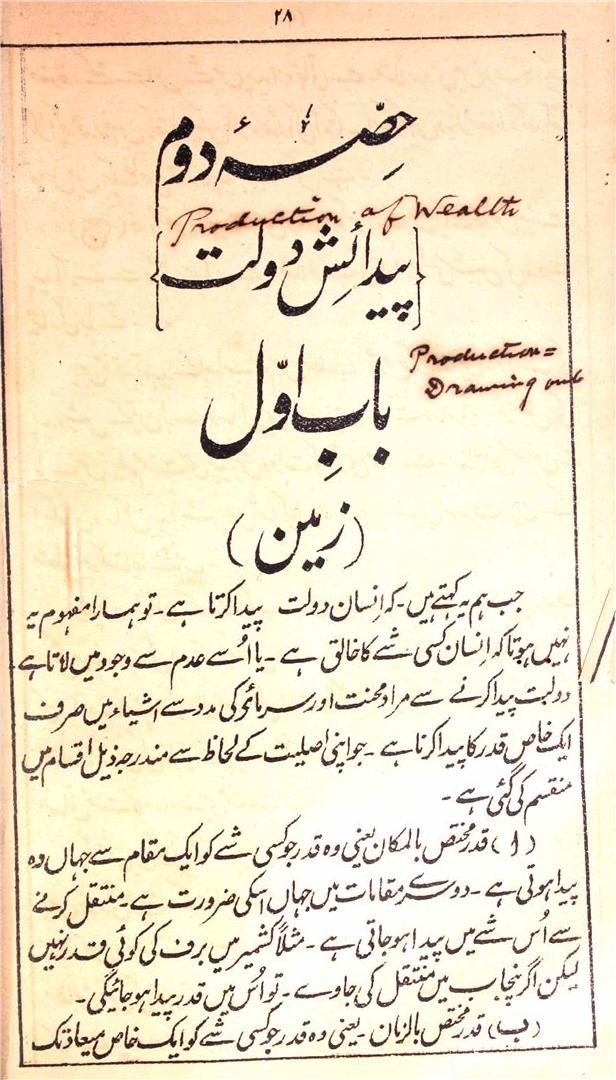 ۲۸
حصّہ دوم
Production of Wealth
{پیدائشِ دولت}
بابِ اوّل
Production =
Drawing out
(زمین)
جب ہم یہ کہتے ہیں۔ کہ اِنسان دولت پیدا کرتا ہے۔ تو ہمارا مفہوم یہ
نہیں ہوتا کہ اِنسان کسی شے کا خالق ہے۔ یا اُسے عدم سے وجود میں لاتا ہے
دولت پیدا کرنے سے مراد محنت اور سرمائے کی مدد سے اشیاء میں صرف
ایک خاص قدر کا پیدا کرنا ہے۔ جو اپنی اصلیت کے لحاظ سے مندرجہ ذیل اقسام میں
منقسم کی گئی ہے۔
(ا) قدر مختص بالمکان یعنی وہ قدر جو کسی شے کو ایک مقام سے جہاں وہ
پیدا ہوتی ہے۔ دوسرے مقامات میں جہاں اسکی ضرورت ہے۔ منتقل کرنے
سے اُس شے میں پیدا ہو جاتی ہے۔ مثلاً کشمیر میں برف کی کوئی قدر نہیں
لیکن اگر پنجاب میں منتقل کی جاوے۔ تو اُس میں قدر پیدا ہو جائیگی۔
(ب) قدر مختص بالزمان۔ یعنی وہ قدر جو کسی شے کو ایک خاص میعاد تک